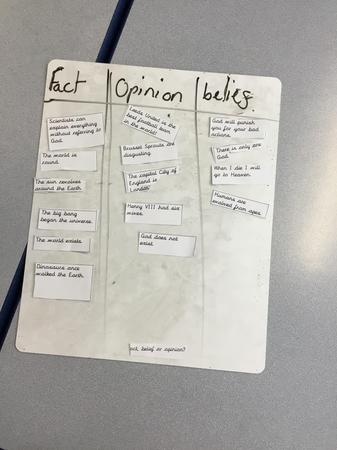 Fact
Scientists can
explain everything
without referring to
God.
The world is
round.
The sun revolves
around the Earth.
The big bang
began the universe.
The world exists.
Dinosaurs once
walked the Earth.
Opinion
Leeds United is the
best football team
in the world!
Brussel Sprouts are
disgusting.
The capital City of
England is
London.
Henry VIII had six
wives.
God does not
exist.
belief
God will punish
you for your bad
actions.
There is only one
God.
When I die I will
go to Heaven.
Humans are
evolved from apes.
belief or opinion?